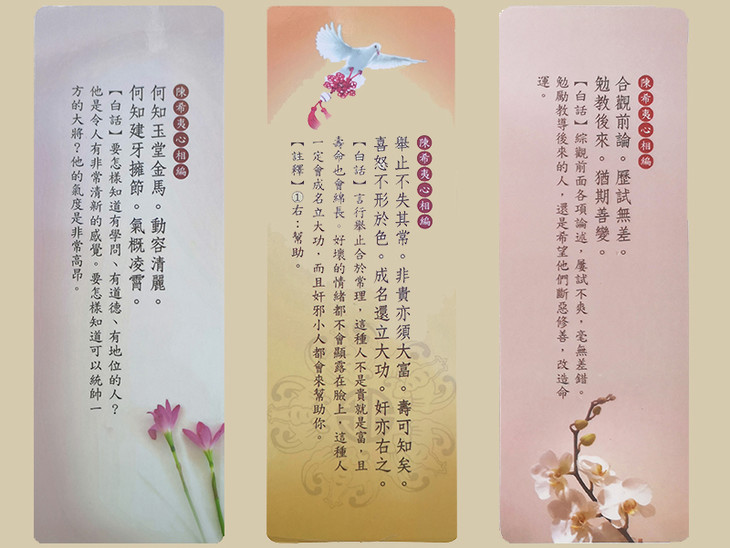 陳希夷心相編
何知玉堂金馬。動容清麗。
何知建牙擁節。氣概凌霄。
【白話】要怎樣知道有學問、有道德、有地位的人？
他是令人有非常清新的感覺。要怎樣知道可以統帥一
方的大將？他的氣度是非常高昂。
陳希夷心相編
舉止不失其常。非貴亦須大富。壽可知矣。
喜怒不形於色。成名還立大功。奸亦右之。
【白話】言行舉止合於常理，這種人不是貴就是富，且
壽命也會綿長。好壞的情緒都不會顯露在臉上，這種人
一定會成名立大功，而且奸邪小人都會來幫助你。
【註釋】①右：幫助。
陳希夷心相編
合觀前論。歷試無差。
勉教後來。猶期善變。
【白話】綜觀前面各項論述，屢試不爽，毫無差錯。
勉勵教導後來的人，還是希望他們斷惡修善，改造命
運。